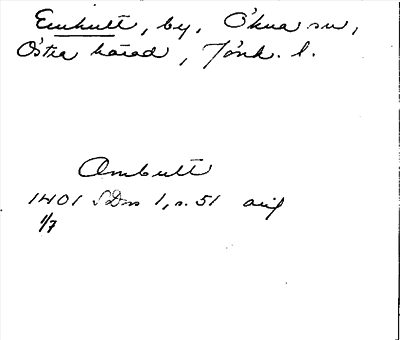 Emhult, by, Ökna sn,
Östra härad, Jönk. l.
Ombult
1401 SDns 1, s. 51 avs
1/7